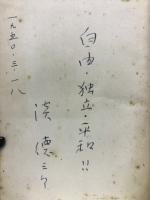 自由・独立・平和!!
淡 徳三郎
一九五〇・三・一八